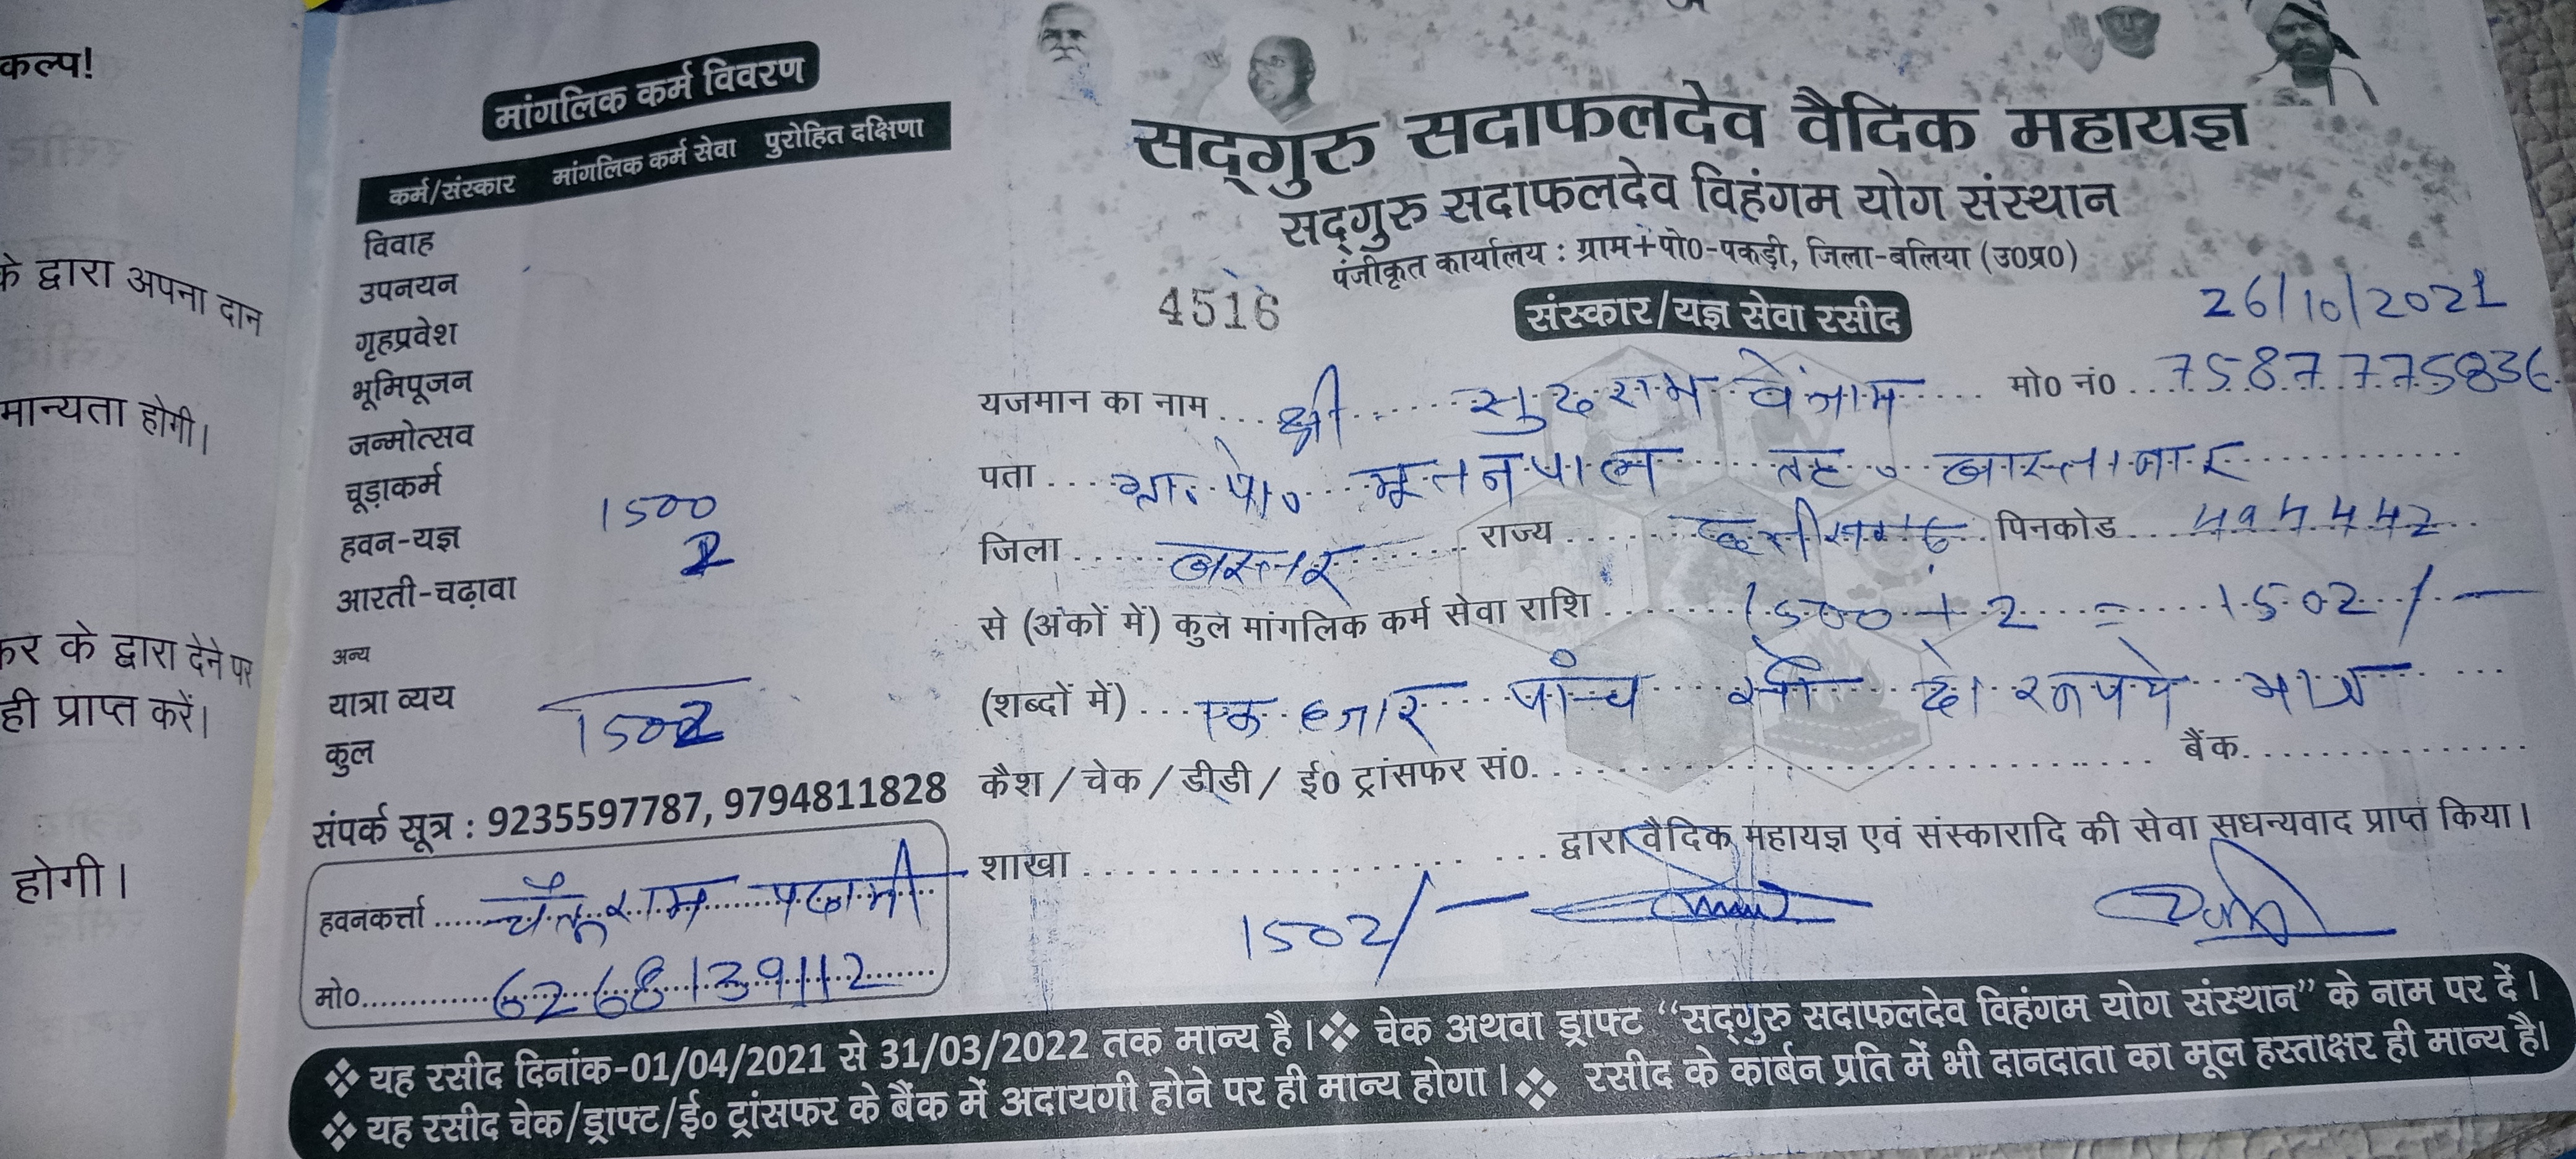 कल्प!
के द्वारा अपना दान
मान्यता होगी।
कर के द्वारा देने पर
ही प्राप्त करें।
होगी।
मांगलिक कर्म विवरण
कर्म/संस्कार मांगलिक कर्म सेवा पुरोहित दक्षिणा
विवाह
उपनयन
गृहप्रवेश
भूमिपूजन
जन्मोत्सव
चूड़ाकर्म
हवन-यज्ञ 1500
आरती-चढ़ावा 2
अन्य
यात्रा व्यय
कुल 1502
संपर्क सूत्र : 9235597787, 9794811828
हवनकर्त्ता चैतूराम पदामी
मो० 6268139112
सद्गुरु सदाफलदेव वैदिक महायज्ञ
सद्गुरु सदाफलदेव विहंगम योग संस्थान
पंजीकृत कार्यालय : ग्राम+पो0-पकड़ी, जिला-बलिया (उ0प्र0)
4516 संस्कार/यज्ञ सेवा रसीद 26/10/2021
यजमान का नाम श्री सुदराम वेंजाम मो0 नं0 7587775836
पता ग्रा. पो० मूतनपाल तह० बास्तानार
जिला बस्तर राज्य छत्तीसगढ़ पिनकोड 494442
से (अंकों में) कुल मांगलिक कर्म सेवा राशि 1500 + 2 = 1502/-
(शब्दों में) एक हजार पांच सौ दो रूपये मात्र
कैश / चेक / डीडी / ई0 ट्रांसफर सं0. बैंक
शाखा द्वारा वैदिक महायज्ञ एवं संस्कारादि की सेवा सधन्यवाद प्राप्त किया।
1502/-
❖ यह रसीद दिनांक-01/04/2021 से 31/03/2022 तक मान्य है। ❖ चेक अथवा ड्राफ्ट “सद्गुरु सदाफलदेव विहंगम योग संस्थान” के नाम पर दें।
❖ यह रसीद चेक/ड्राफ्ट/ई० ट्रांसफर के बैंक में अदायगी होने पर ही मान्य होगा। ❖ रसीद के कार्बन प्रति में भी दानदाता का मूल हस्ताक्षर ही मान्य है।